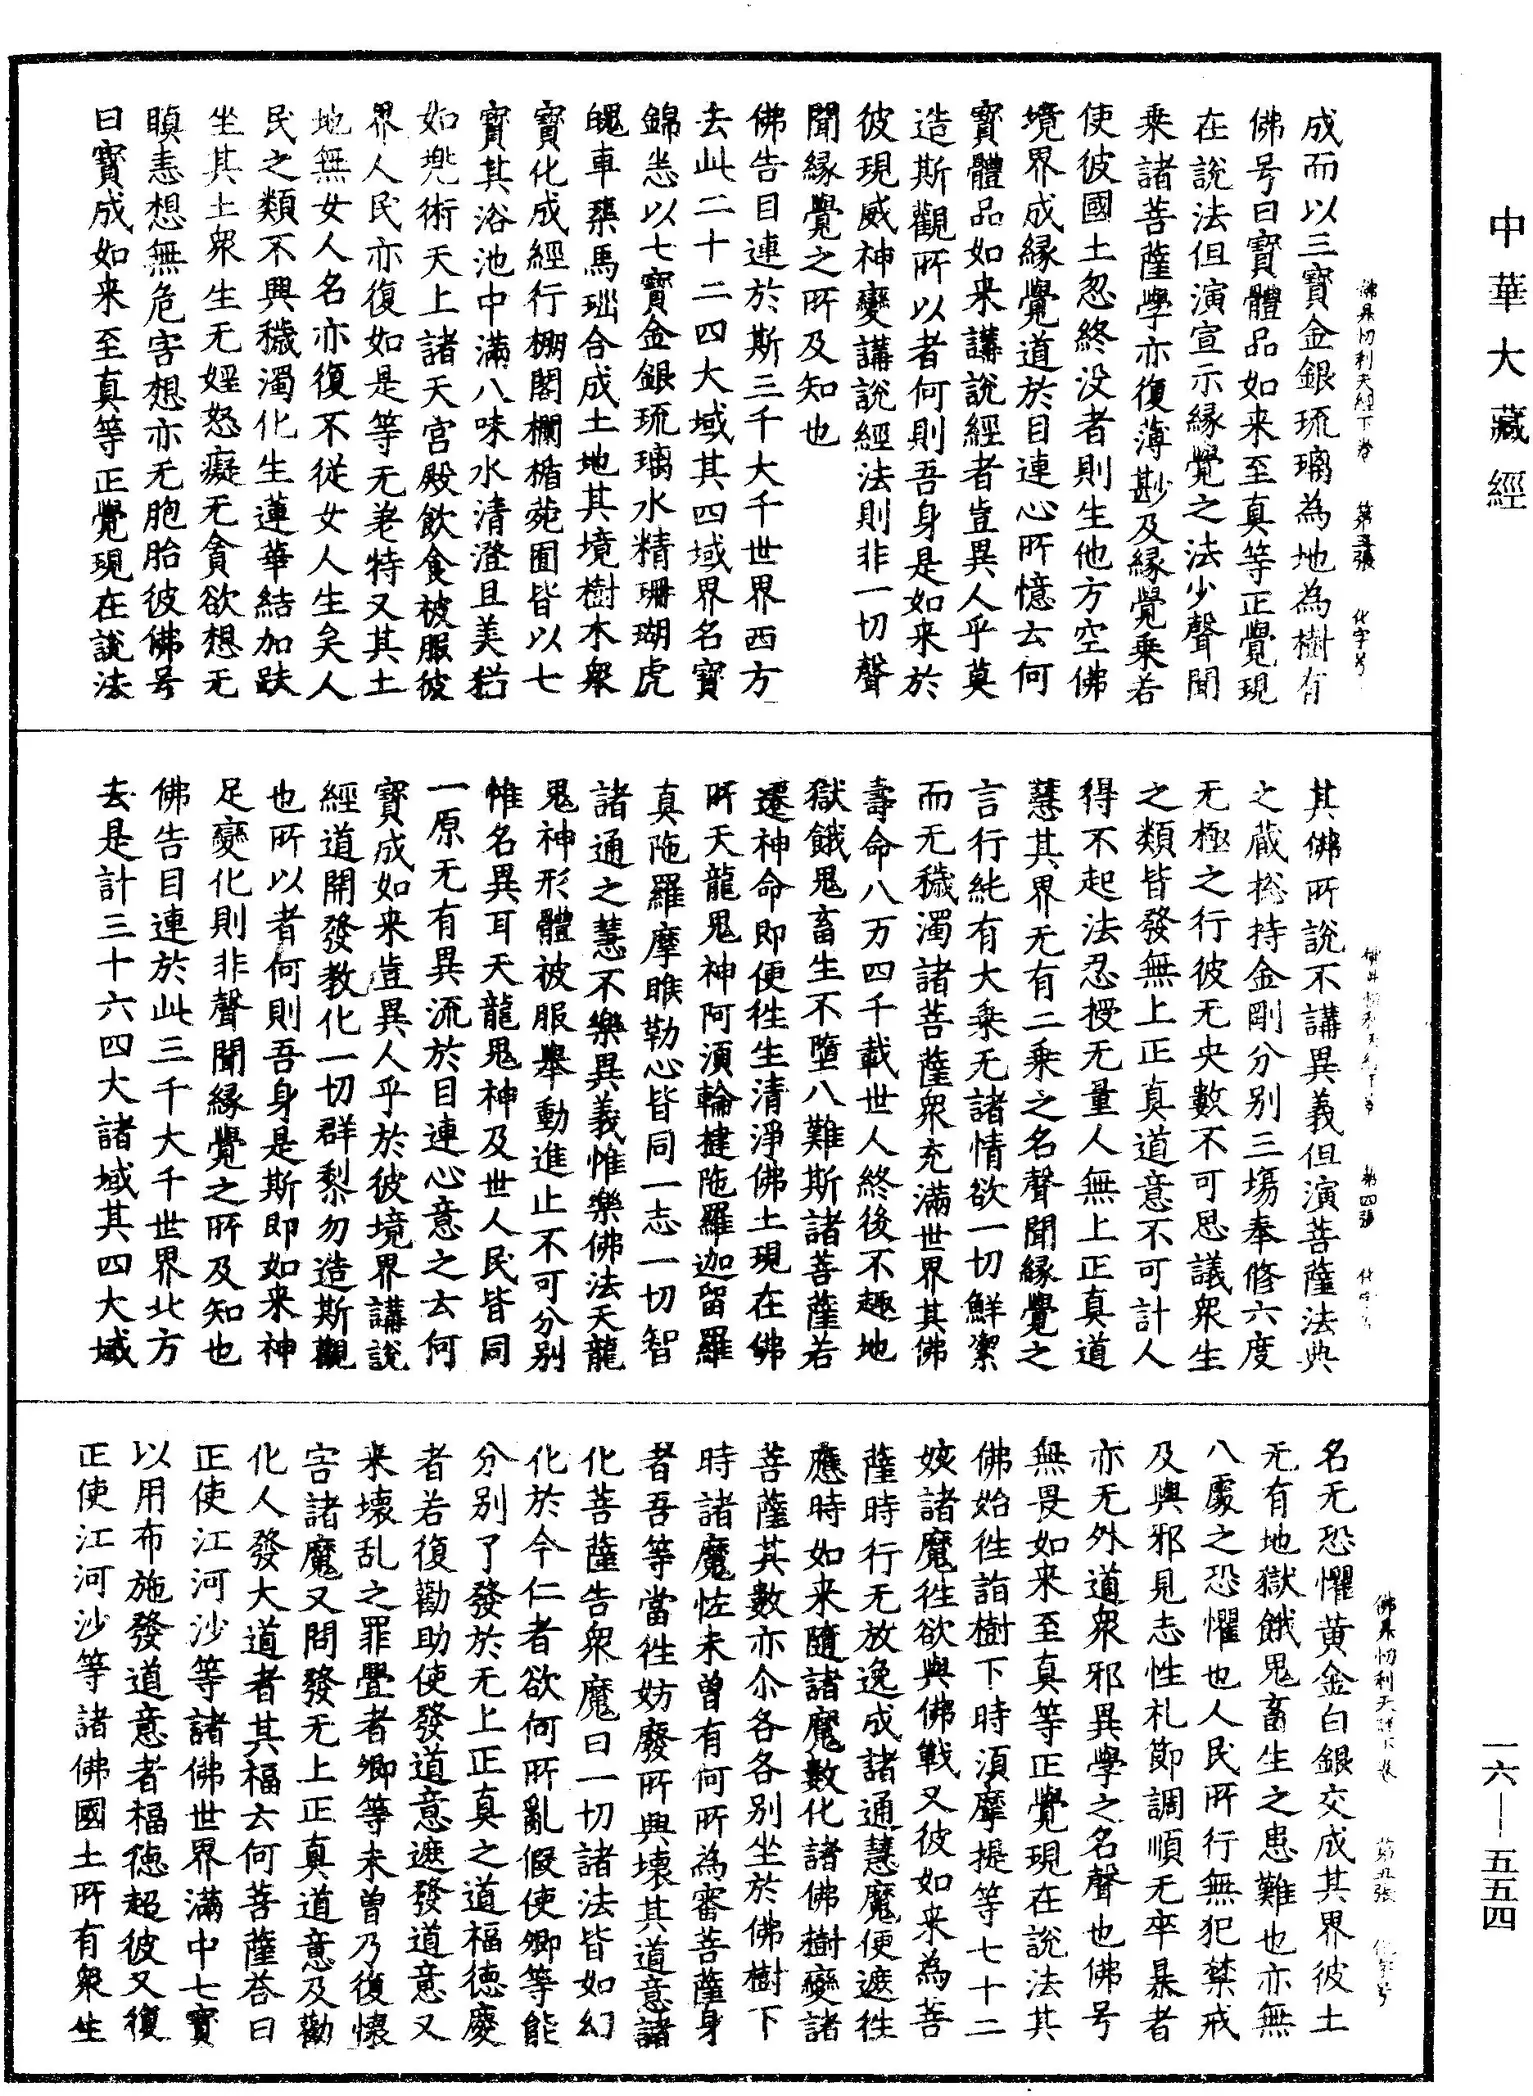 中華大藏經
佛昇忉利天經下卷 第三張 化字号
成而以三寶金銀琉璃為地為樹有
佛号曰寶體品如来至真等正覺現
在說法但演宣示縁覺之法少聲聞
乗諸菩薩學亦復薄尠及縁覺乗若
使彼國土忽終没者則生他方空佛
境界成縁覺道於目連心所憶云何
寳體品如来講說經者豈異人乎莫
造斯觀所以者何則吾身是如来於
彼現威神變講說經法則非一切聲
聞縁覺之所及知也
佛告目連於斯三千大千世界西方
去此二十二四大域其四域界名寶
錦悉以七寶金銀琉璃水精珊瑚虎
魄車𤦲馬瑙合成土地其境樹木衆
寶化成經行棚閣欄楯菀囿皆以七
寶其浴池中滿八味水清澄且美猶
如兜術天上諸天宫殿飲食被服彼
界人民亦復如是等无差特又其土
地無女人名亦復不従女人生矣人
民之類不興穢濁化生蓮華結加趺
坐其土衆生无婬怒癡无貪欲想无
瞋恚想無危害想亦无胞胎彼佛号
曰寶成如来至真等正覺現在說法
第四張
其佛所說不講異義但演菩薩法典
之蔵捴持金剛分别三塲奉修六度
无極之行彼无央數不可思議衆生
之類皆發無上正真道意不可計人
得不起法忍授无量人無上正真道
慧其界无有二乗之名聲聞縁覺之
言行純有大乗无諸情欲一切鮮潔
而无穢濁諸菩薩衆充滿世界其佛
壽命八万四千載世人終後不趣地
獄餓鬼畜生不墮八難斯諸菩薩若
遷神命即便徃生清淨佛土現在佛
所天龍鬼神阿須輪揵陁羅迦留羅
真陁羅摩睺勒心皆同一志一切智
諸通之慧不樂異義惟樂佛法天龍
鬼神形體被服舉動進止不可分别
惟名異耳天龍鬼神及世人民皆同
一原无有異流於目連心意之云何
寶成如来豈異人乎於彼境界講說
經道開發教化一切群黎勿造斯觀
也所以者何則吾身是斯即如来神
足變化則非聲聞縁覺之所及知也
佛告目連於此三千大千世界北方
去是計三十六四大諸域其四大域
佛昇忉利天經下卷 第五張 化字号
名无恐懼黄金白銀交成其界彼土
无有地獄餓鬼畜生之患難也亦無
八處之恐懼也人民所行無犯禁戒
及與邪見志性札節調順无卒暴者
亦无外道衆邪異學之名聲也佛号
無畏如来至真等正覺現在說法其
佛始徃詣樹下時須摩提等七十二
姟諸魔徃欲與佛戰又彼如来為菩
薩時行无放逸成諸通慧魔便遮徃
應時如来隨諸魔數化諸佛樹變諸
菩薩其數亦尒各各别坐於佛樹下
時諸魔恠未曾有何所為審菩薩身
者吾等當徃妨廢所興壞其道意諸
化菩薩告衆魔曰一切諸法皆如幻
化於今仁者欲何所亂假使卿等能
分别了發於无上正真之道福徳慶
者若復勸助使發道意遮發道意又
来壊乱之罪舋者卿等未曽乃復懷
害諸魔又問發无上正真道意及勸
化人發大道者其福云何菩薩荅曰
正使江河沙等諸佛世界滿中七寶
以用布施發道意者福徳超彼又復
正使江河沙等諸佛國土所有衆生
一六—五五四